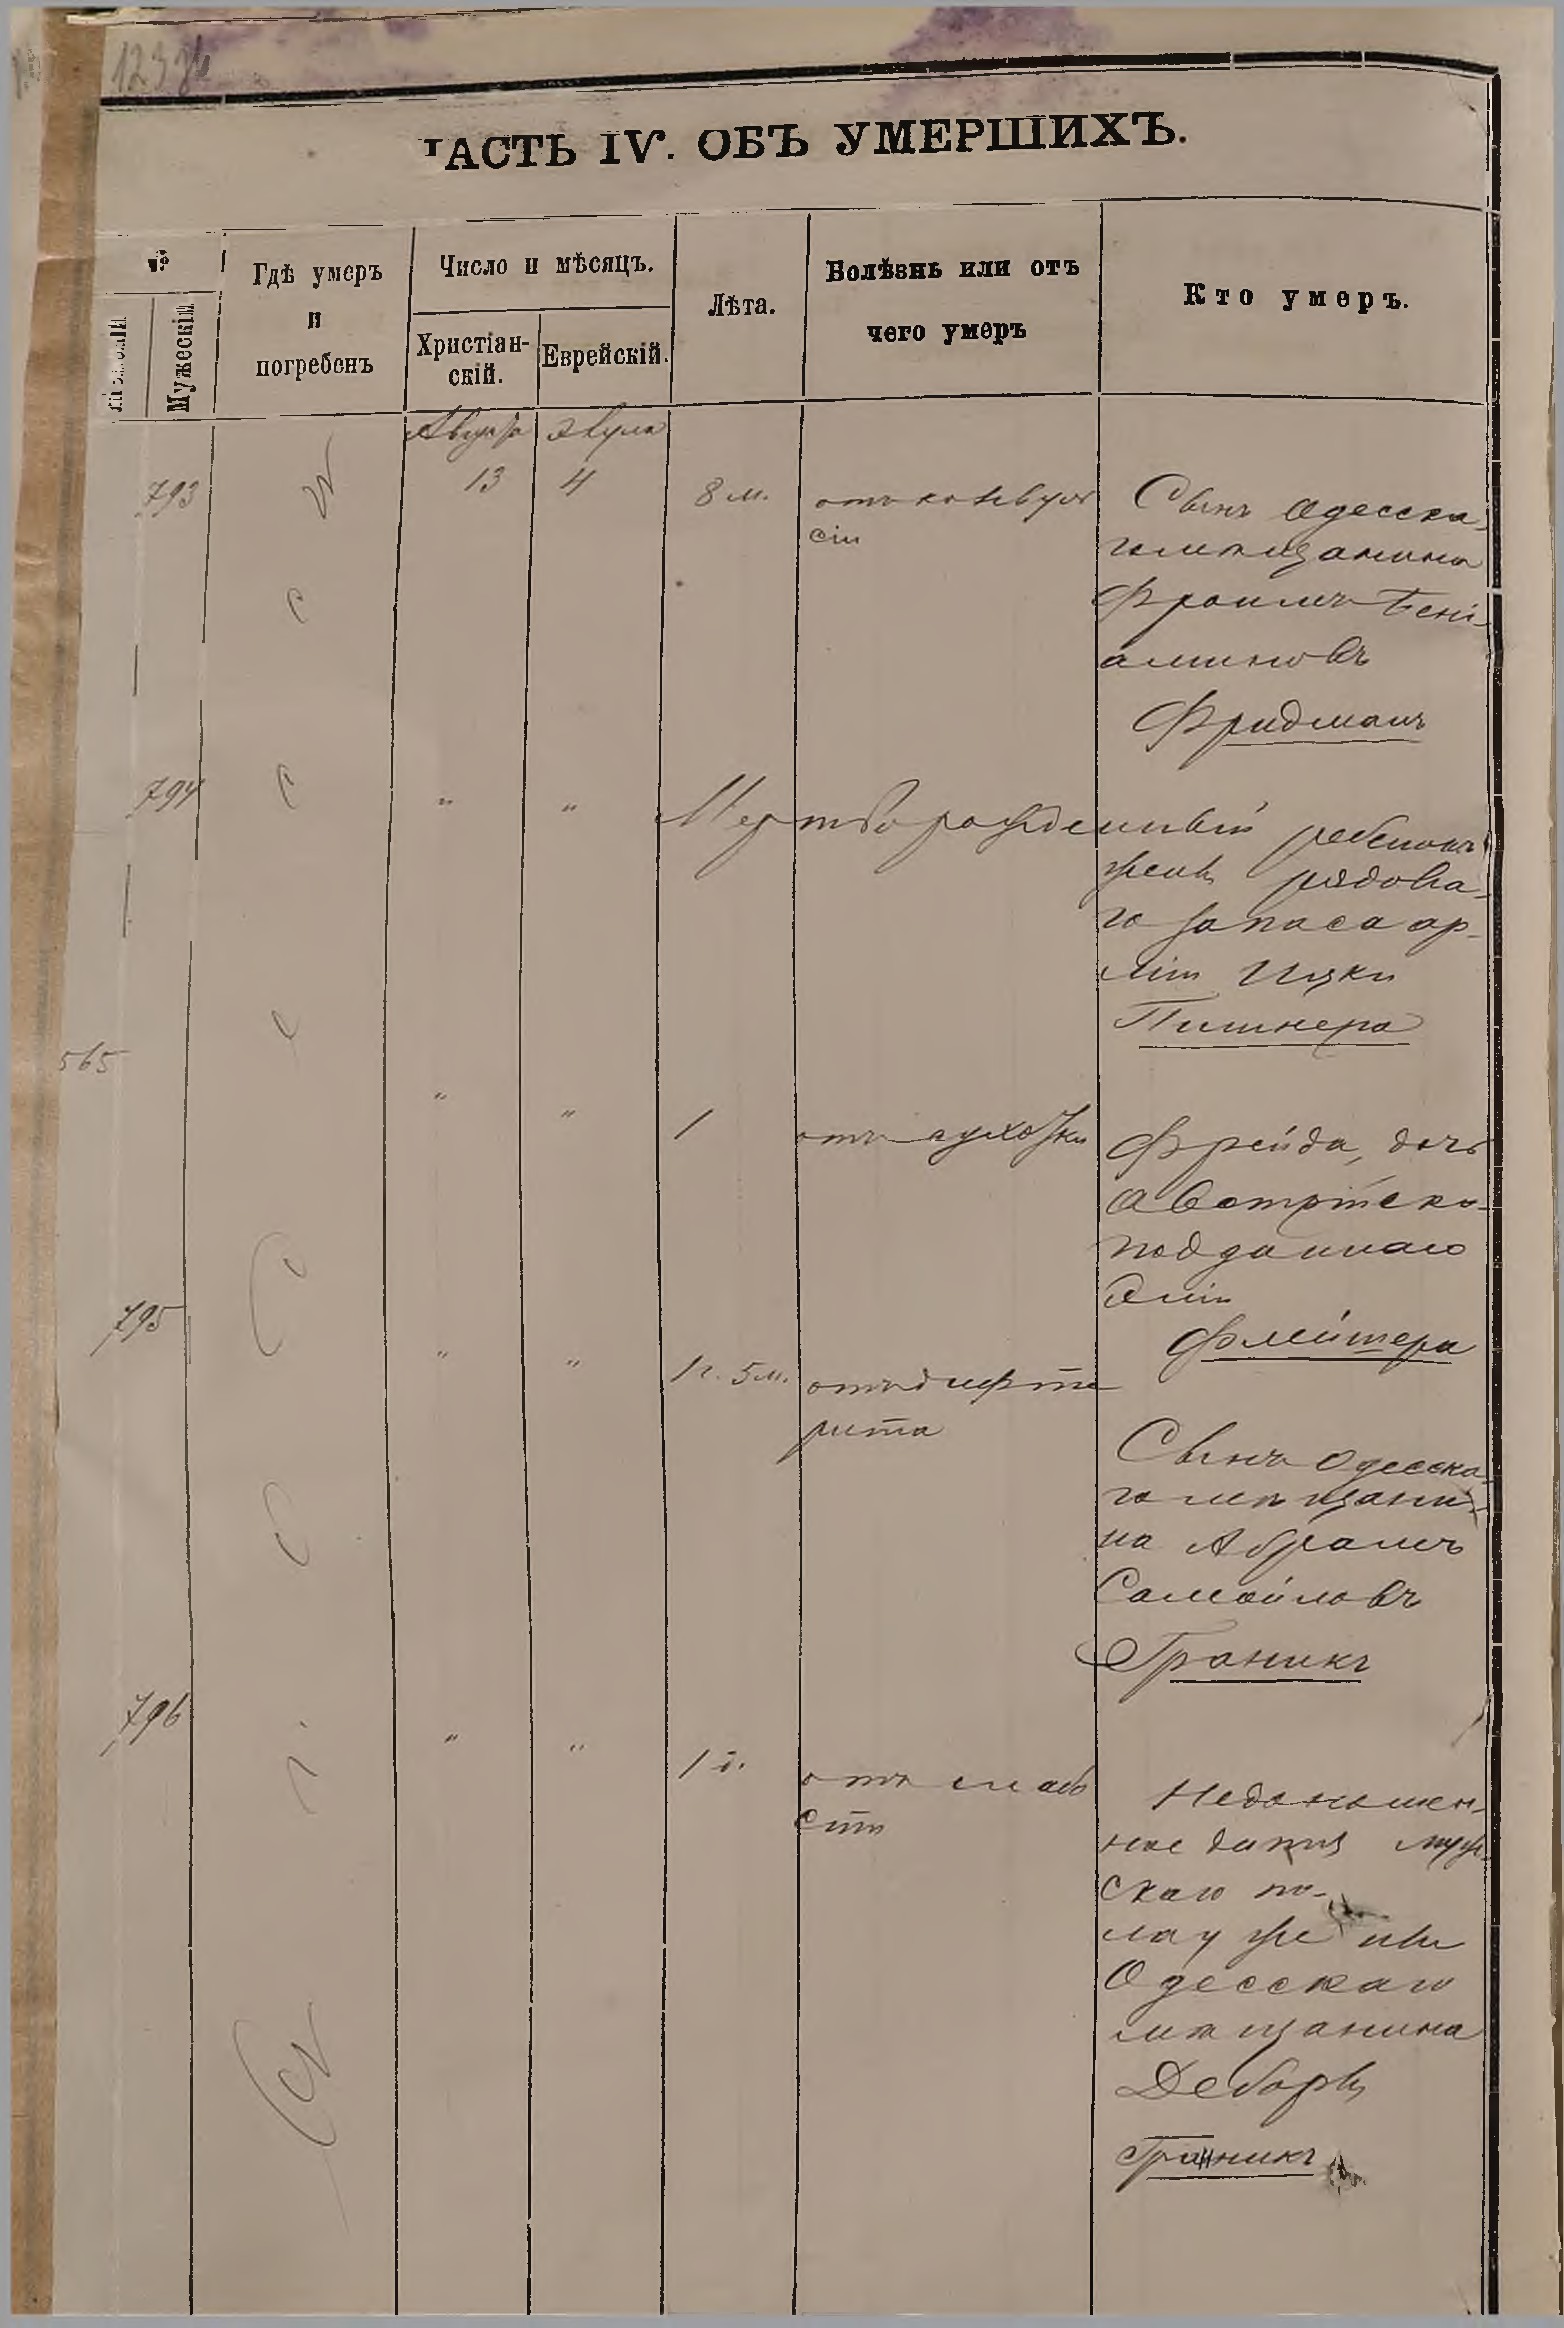 ЧАСТЬ IV. ОБЪ УМЕРШИХЪ.
№
Женскій
Мужескій
Гдѣ умеръ
и
погребенъ
Число и мѣсяцъ.
Христіан-
скій.
Еврейскій.
Лѣта.
Болѣзнь или отъ
чего умеръ
Кто умеръ.
Августа Элула
793 13 4 8 м. отъ конвуль
сіи
Сынъ Одесска-
го мѣщанина
Фроимъ Бені-
аминовъ
Фридманъ
794 " " Мертворожденный ребенокъ
жены рядова-
го запаса ар-
міи Ицки
Пишнера
565 " " 1 отъ сухотки
Фрейда, дочь
Австрійско-
подданаго
Флейтера
795 " " 1 г. 5 м. отъ дифте
рита
Сынъ Одесска-
го мѣщани-
на Абрамъ
Самойловъ
Граникъ
796 " " 1 д. отъ слабо
сти
Недоношен-
ное дитя муж-
скаго по-
ла у жены
Одесскаго
мѣщанина
Деборы
Граникъ